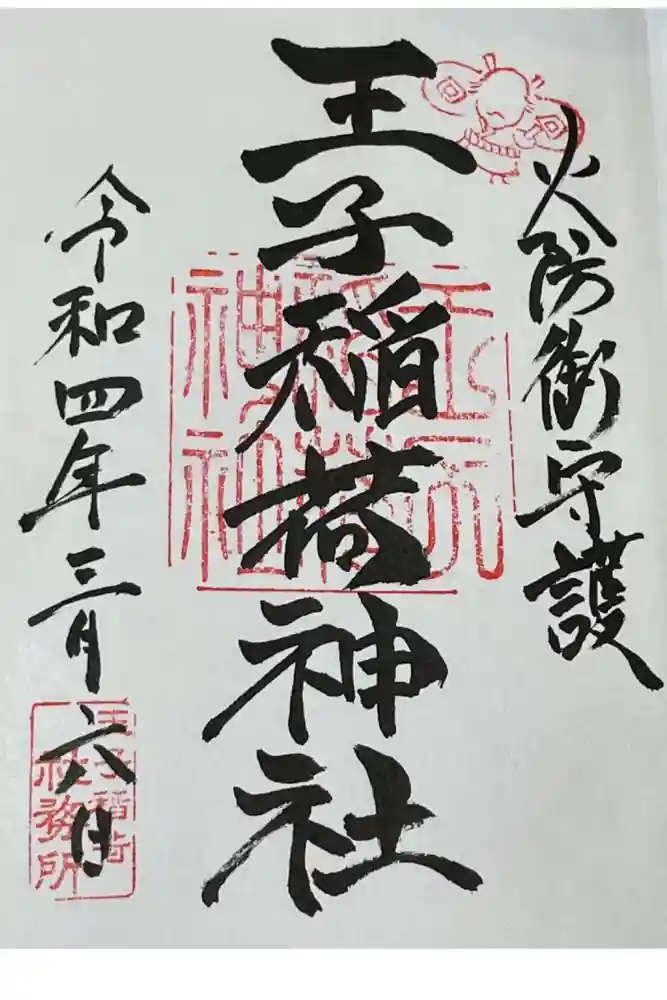 火防御守護
王子稲荷神社
王子
稲荷
神社
令和四年三月六日
王子稲荷
社務所